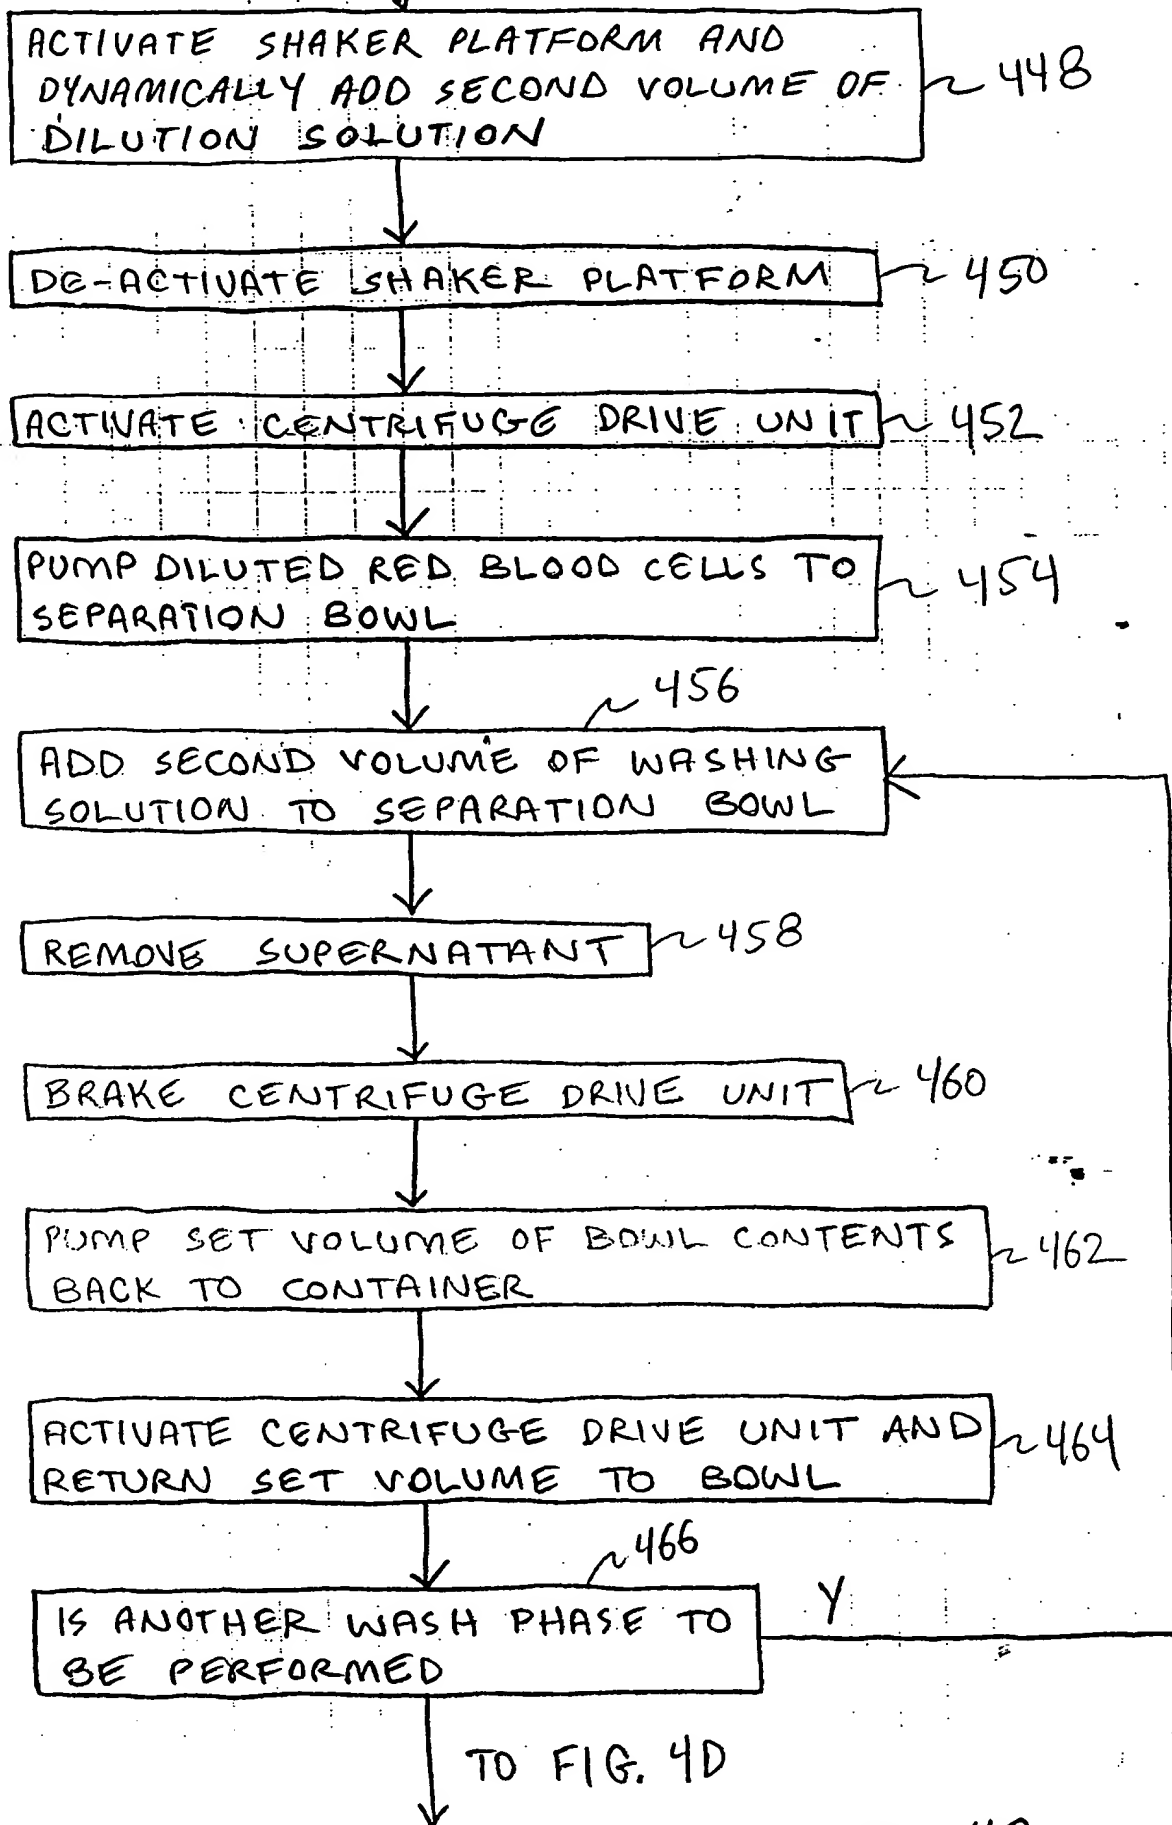 ACTIVATE SHAKER PLATFORM AND
DYNAMICALLY ADD SECOND VOLUME OF
DILUTION SOLUTION
448
DE-ACTIVATE SHAKER PLATFORM
450
ACTIVATE CENTRIFUGE DRIVE UNIT
452
PUMP DILUTED RED BLOOD CELLS TO
SEPARATION BOWL
454
456
ADD SECOND VOLUME OF WASHING
SOLUTION TO SEPARATION BOWL
REMOVE SUPERNATANT
458
BRAKE CENTRIFUGE DRIVE UNIT
460
PUMP SET VOLUME OF BOWL CONTENTS
BACK TO CONTAINER
462
ACTIVATE CENTRIFUGE DRIVE UNIT AND
RETURN SET VOLUME TO BOWL
464
466
IS ANOTHER WASH PHASE TO
BE PERFORMED
Y
TO FIG. 4D